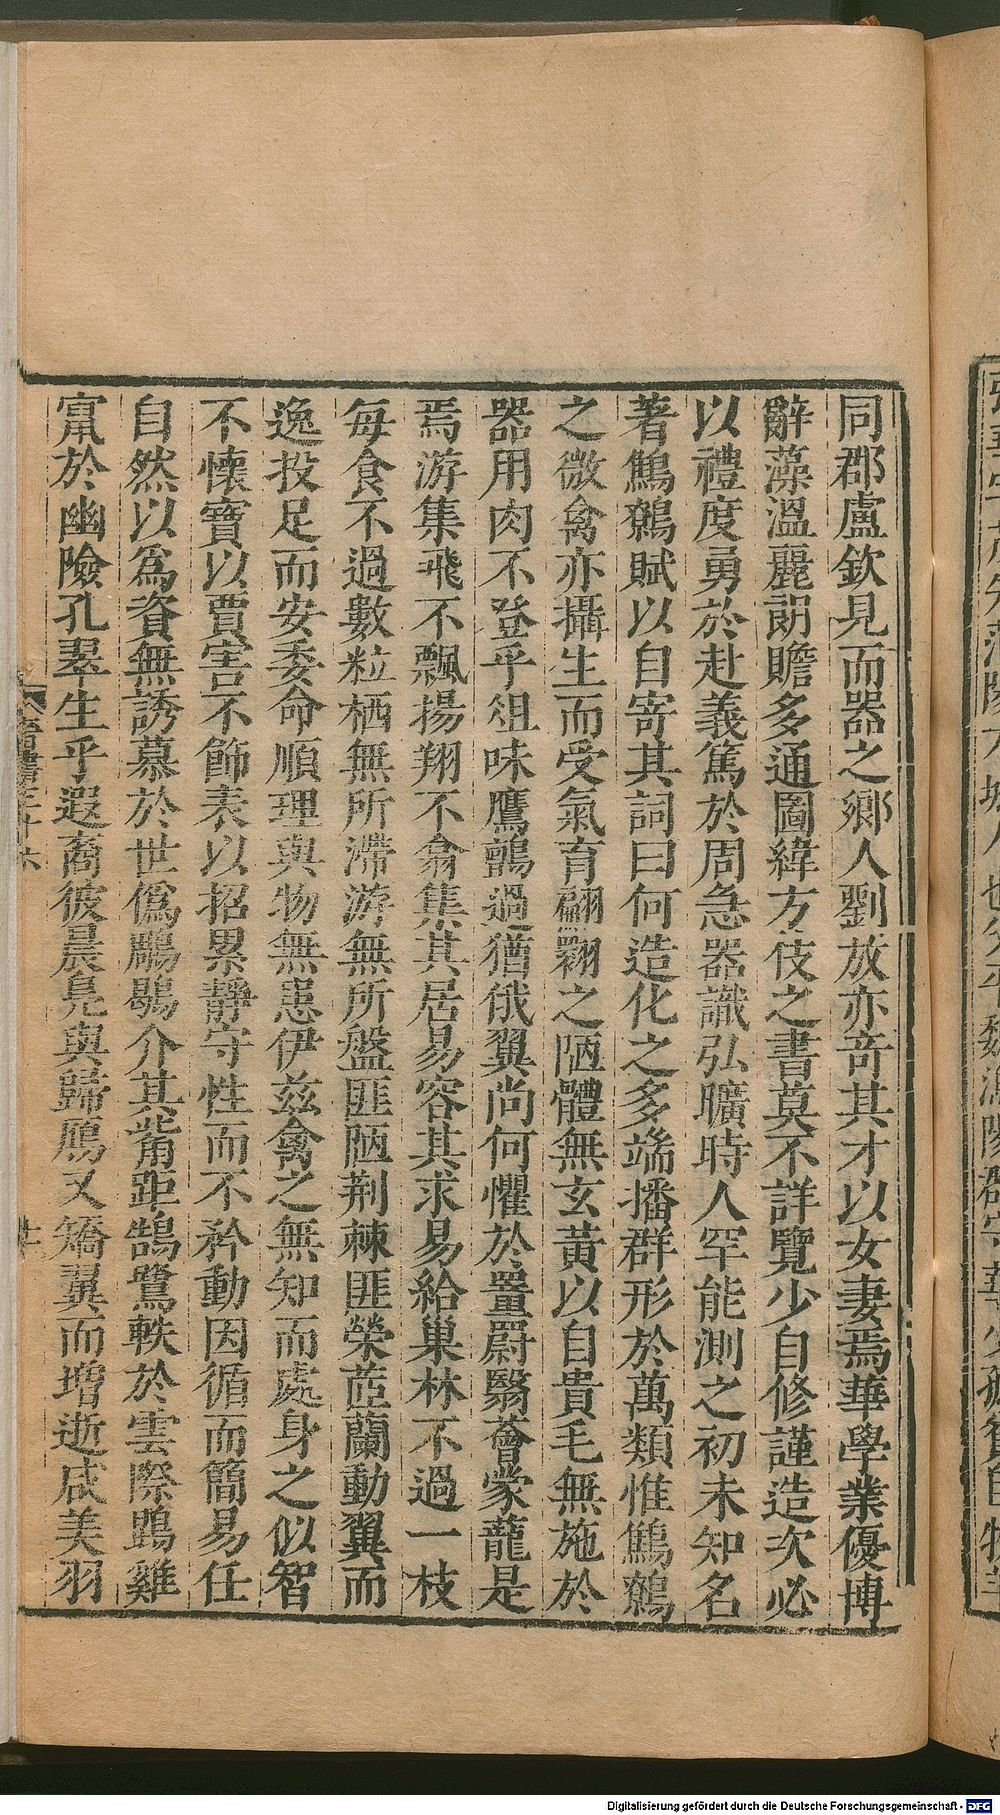 同郡盧欽見而器之鄉人劉放亦奇其才以女妻焉華學業優博
辭藻溫麗朗贍多通圖緯方伎之書莫不詳覽少自修謹造次必
以禮度勇於赴義篤於周急器識弘曠時人罕能測之初未知名
著鷦鷯賦以自寄其詞曰何造化之多端播群形於萬類惟鷦鷯
之微禽亦攝生而受氣育翩翾之陋體無玄黃以自貴毛無施於
器用肉不登乎俎味鷹鸇過猶俄翼尚何懼於罿罻翳薈蒙蘢是
焉游集飛不飄揚翔不翕集其居易容其求易給巢林不過一枝
每食不過數粒栖無所滯游無所盤匪陋荆棘匪榮茝蘭動翼而
逸投足而安委命順理與物無患伊茲禽之無知而處身之似智
不懷寶以賈害不飾表以招累靜守性而不矜動因循而簡易任
自然以爲資無誘慕於世僞鵰鶡介其觜距鵠鷺軼於雲際鵾雞
竄於幽險孔翠生乎遐裔彼晨鳧與歸鴈又矯翼而增逝咸美羽
晉書三十六
廿
Digitalisierung gefördert durch die Deutsche Forschungsgemeinschaft - DFG